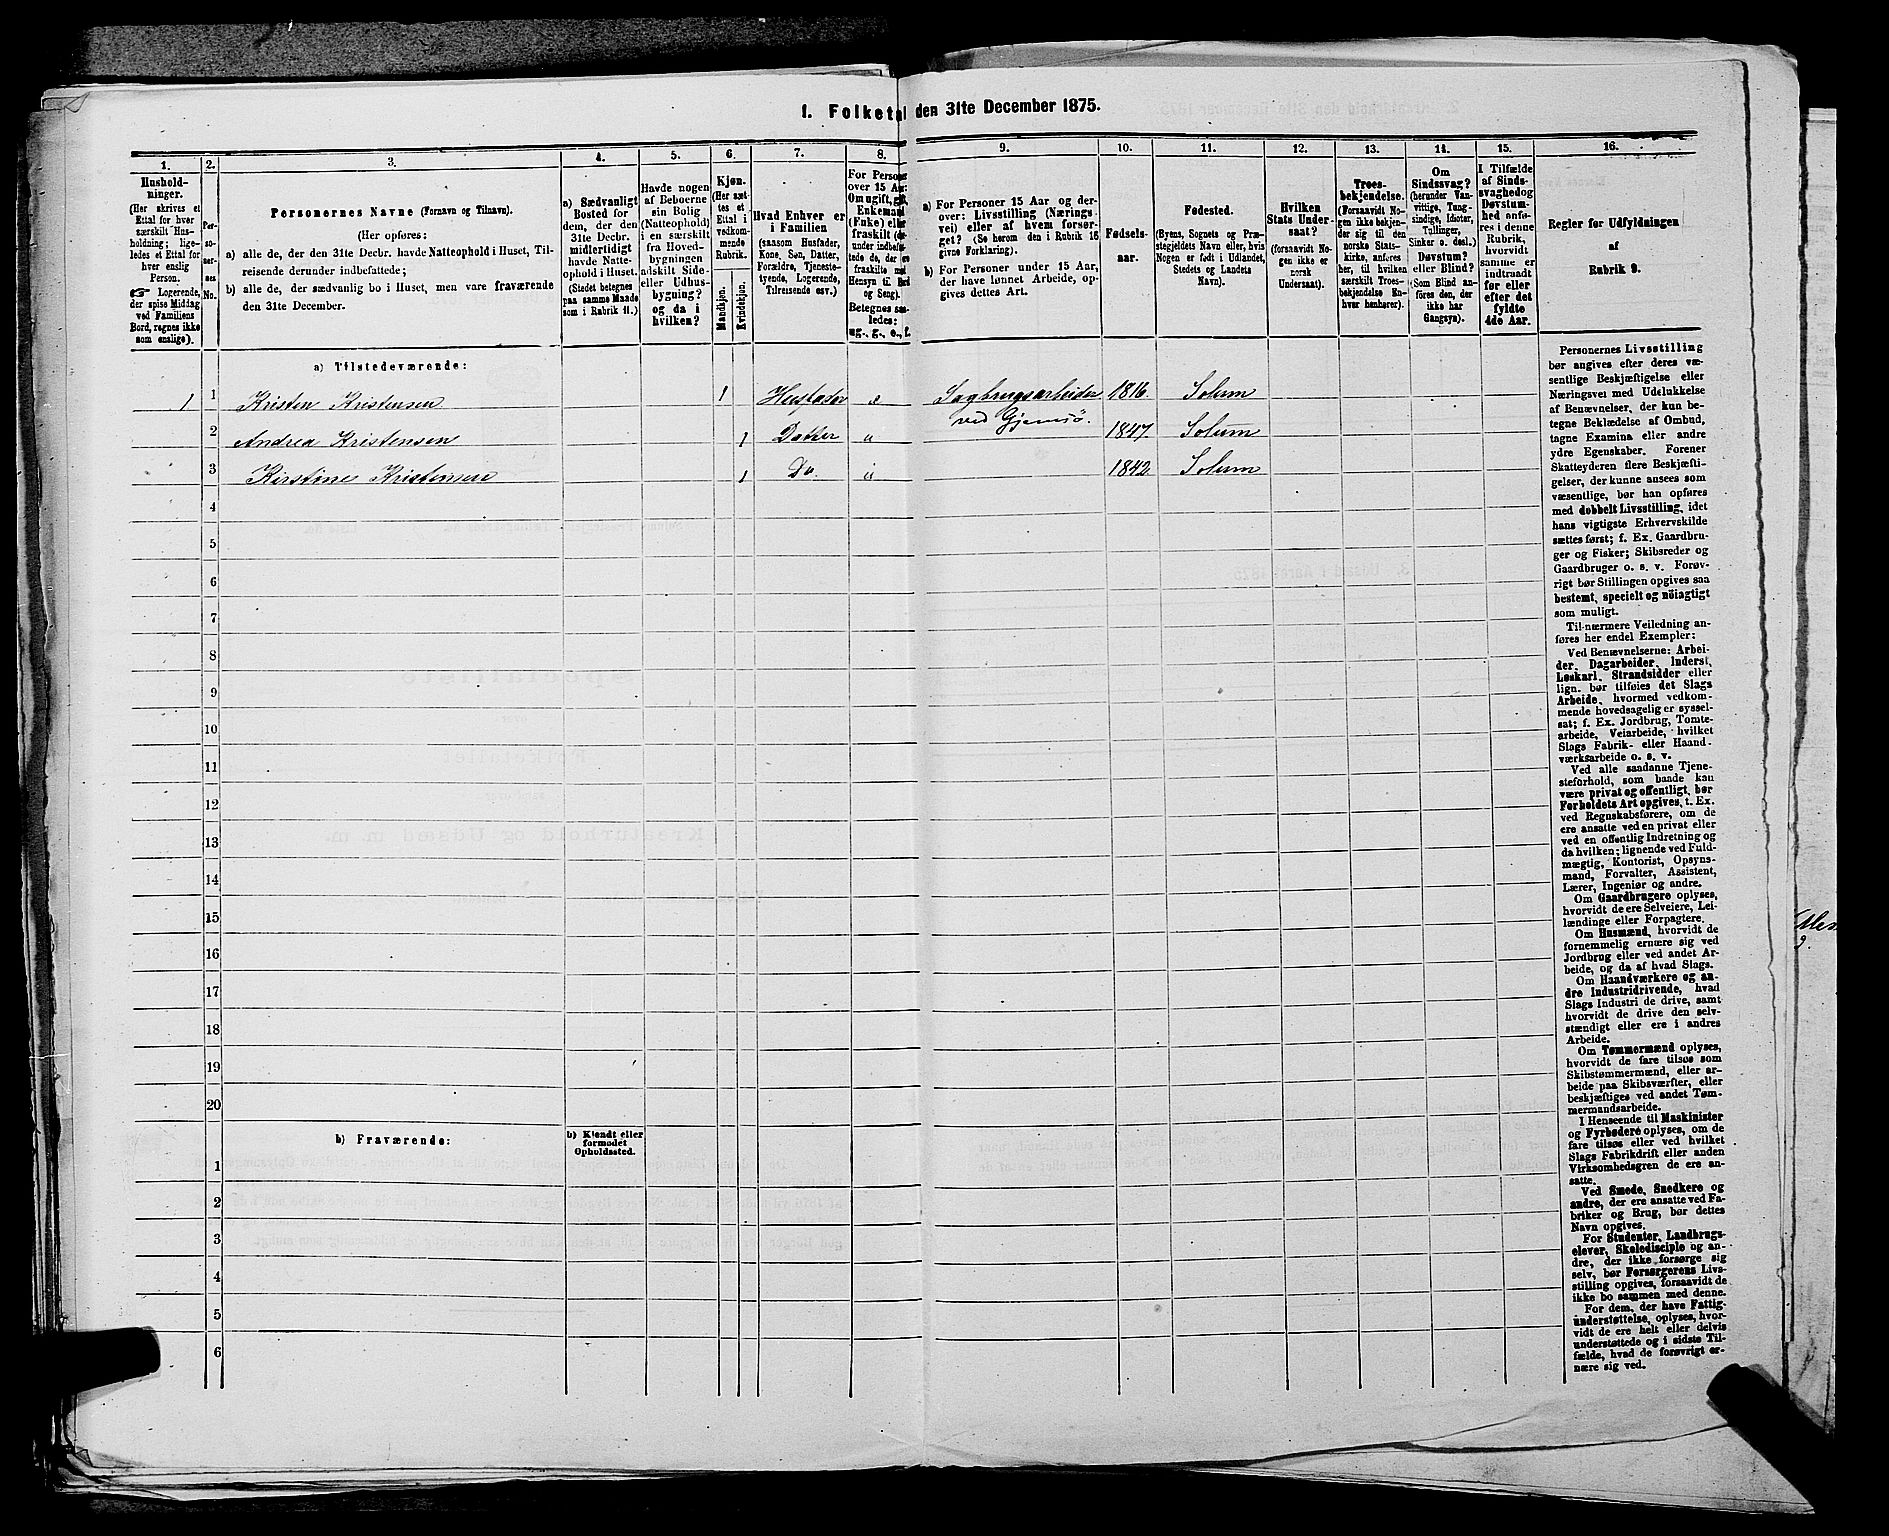 1. Folketal den 31te December 1875.
1. 2. 3. 4. 5. 6. 7. 8. 9. 10. 11. 12. 13. 14. 15. 16.
Hushold-
ninger.
(Her skrives et
Ettal for hver
særskilt Hus-
holdning; lige-
ledes et Ettal for
hver enslig
Person.
☞ Logerende,
der spise Middag
ved Familiens
Bord, regnes ikke
som enslige).
Per-
so-
ner-
nes
No.
Personernes Navne (Fornavn og Tilnavn).
(Her opføres:
a) alle de, der den 31te Decbr. havde Natteophold i Huset, Til-
reisende derunder indbefattede;
b) alle de, der sædvanlig bo i Huset, men vare fraværende
den 31te December.
a) Sædvanligt
Bosted for
dem, der den
31te Decbr.
midlertidigt
havde Natte-
ophold i Huset.
(Stedet betegnes
paa samme Maade
som i Rubrik 11.)
Havde nogen
af Beboerne
sin Bolig
(Natteophold)
i en særskilt
fra Hoved-
bygningen
adskilt Side-
eller Udhus-
bygning?
og da i
hvilken?
Kjøn.
(Her sæt-
tes et
Ettal i
vedkom-
mende
Rubrik.
Mandkjøn.
Kvindekjøn.
Hvad Enhver er
i Familien
(saasom Husfader,
Kone, Søn, Datter,
Forældre, Tjeneste-
tyende, Logerende,
Tilreisende osv.)
For Personer
over 15 Aar:
Om ugift, gift,
Enkemand
(Enke) eller
fraskilt
Betegnes saa-
ledes:
ug., g., e., f.
a) For Personer 15 Aar og der-
over: Livsstilling (Nærings-
vei) eller af hvem forsør-
get? (Se herom den i Rubrik 16
givne Forklaring).
b) For Personer under 15 Aar,
der have lønnet Arbeide, op-
gives dettes Art.
Fødsels-
aar.
Fødested.
(Byens, Sognets og Præ-
stegjeldets Navn eller, hvis
Nogen er født i Udlandet,
Stedets og Landets
Navn).
Hvilken
Stats Under-
saat?
(forsaavidt No-
gen ikke er
norsk
Undersaat).
Troes-
bekjendelse.
(Forsaavidt No-
gen ikke bekjen-
der sig til den
norske Stats-
kirke, anføres
her, til hvilken
særskilt Troes-
bekjendelse En-
hver henhører).
Om
Sindssvag?
(herunder Van-
vittige, Tung-
sindige, Idioter,
Tullinger,
Sinker o. desl.).
Døvstum?
eller Blind?
(Som Blind an-
føres den, der
ikke har
Gangsyn).
I Tilfælde
af Sinds-
svaghed og
Døvstum-
hed anfø-
res i denne
Rubrik,
hvorvidt
samme er
indtraadt
før eller
efter det
fyldte
4de Aar.
Regler for Udfyldningen
af
Rubrik 9.
a) Tilstedeværende:
1 1 Kristen Kristensen 1 Husfader e Sagbrugsarbeider 1816. Solum
ved Gjemsø.
2 Andrea Kristensen 1 Datter u 1847. Solum
3 Kirstine Kristensen 1 Do. u 1842. Solum
4
5
6
7
8
9
10
11
12
13
14
15
16
17
18
19
20
b) Fraværende:
b) Kjendt eller
formodet
Opholdssted.
1
2
3
4
5
6
Personernes Livsstilling
bør angives efter deres væ-
sentlige Beskjæftigelse eller
Næringsvei med Udelukkelse
af Benævnelser, der kun be-
tegne Beklædelse af Ombud,
tagne Examina eller andre
ydre Egenskaber. Forener
Skatteyderen flere Beskjæfti-
gelser, der kunne ansees som
væsentlige, bør han opføres
med dobbelt Livsstilling, idet
hans vigtigste Erhvervskilde
sættes først; f. Ex. Gaardbru-
ger og Fisker; Skibsreder og
Gaardbruger o. s. v. Forøv-
rigt bør Stillingen opgives saa
bestemt, specielt og nöiagtigt
som muligt.
Til nærmere Veiledning an-
føres her endel Exempler:
Ved Benævnelserne: Arbei-
der, Dagarbeider, Inderst,
Løskarl, Strandsidder eller
lign. bør tilføies det Slags
Arbeide, hvormed vedkom-
mende hovedsagelig er syssel-
sat; f. Ex. Jordbrug, Tomte-
arbeide, Veiarbeide, hvilket
Slags Fabrik- eller Haand-
værksarbeide o. s. v.
Ved alle saadanne Tjene-
steforhold, som baade kan
være privat og offentligt, bør
Forholdets Art opgives, t. Ex.
ved Regnskabsførere, om de
ere ansatte ved en privat eller
ved en offentlig Indretning og
da hvilken; lignende ved Fuld-
mægtig, Kontorist, Opsyns-
mand, Forvalter, Assistent,
Lærer, Ingeniør og andre.
Om Gaardbrugere oplyses,
hvorvidt de ere Selveiere, Lei-
lændinge eller Forpagtere.
Om Husmænd, hvorvidt de
fornemmelig ernære sig ved
Jordbrug eller ved andet Ar-
beide, og da af hvad Slags.
Om Haandværkere og an-
dre Industridrivende, hvad
Slags Industri de drive, samt
hvorvidt de drive den selv-
stændigt eller ere i andres
Arbeide.
Om Tømmermænd oplyses,
hvorvidt de fare tilsøs som
Skibstømmermænd, eller ar-
beide paa Skibsværfter, eller
beskjæftiges ved andet Tøm-
mermandsarbeide.
I Henseende til Maskinister
og Fyrbødere oplyses, om de
fare tilsøs eller ved hvilket
Slags Fabrikdrift eller anden
Virksomhedsgren de ere an-
satte.
Ved Smede, Snedkere og
andre, der ere ansatte ved Fa-
briker og Brug, bør dettes
Navn opgives.
For Studenter, Landbrugs-
elever, Skoledisciple og an-
dre, der ikke forsørge sig
selv, bør Forsørgerens Livs-
stilling opgives, forsaavidt de
ikke bo sammen med denne.
For dem, der have Fattig-
understøttelse, oplyses, hvor-
vidt de ere helt eller delvis
understøttede og i sidste Til-
fælde, hvad de forøvrigt er-
nære sig ved.